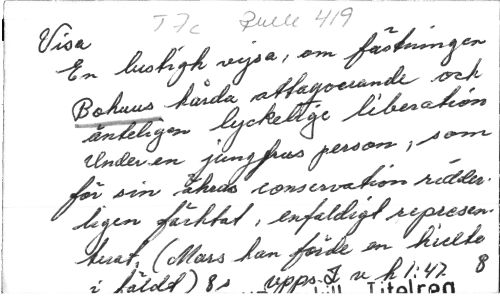 T7c Quelle 419
Visa
En lustigh vijsa, om fästningen
Bohuus hårda attaqverande och
änteligen lyckelige liberation
Under en jungfrus person, som
för sin ähras conservation ridder-
ligen fächtat, enfaldigt represen-
terat. (Mars han förde en hielte
i fäldt) 8s Upps. I v h 1:47 8
till Titelreg